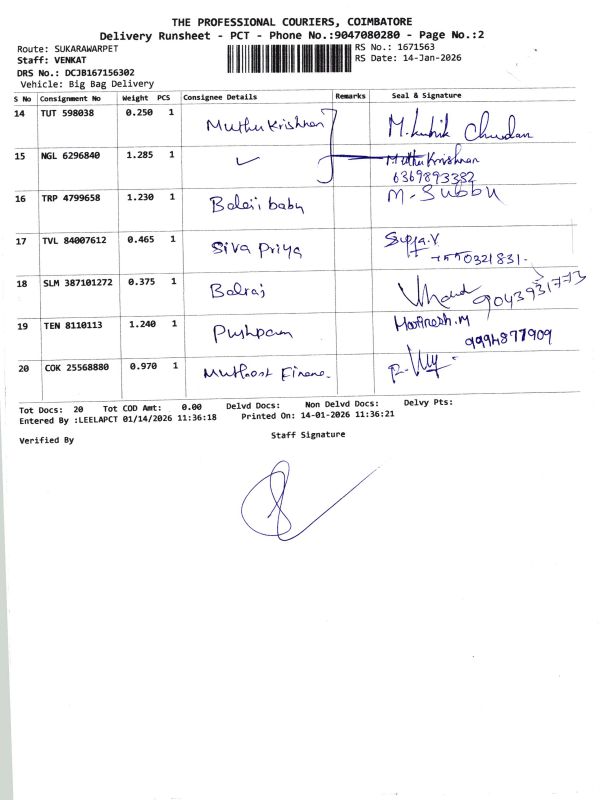 THE PROFESSIONAL COURIERS, COIMBATORE
Delivery Runsheet - PCT - Phone No.:9047080280 - Page No.:2
Route: SUKARAWARPET
RS No.: 1671563
Staff: VENKAT
RS Date: 14-Jan-2026
DRS No.: DCJB167156302
Vehicle: Big Bag Delivery
S No Consignment No Weight PCS Consignee Details Remarks Seal & Signature
14 TUT 598038 0.250 1 Muthu Krishnan
15 NGL 6296840 1.285 1 ✓ Muthu Krishnan
6369893382
16 TRP 4799658 1.230 1 Balaji baby M. Subbu
17 TVL 84007612 0.465 1 Siva Priya
18 SLM 387101272 0.375 1 Balraj 9043931773
19 TEN 8110113 1.240 1 Pushpam
9994877909
20 COK 25568880 0.970 1 Muthoot Finance.
Tot Docs: 20 Tot COD Amt: 0.00 Delvd Docs: Non Delvd Docs: Delvy Pts:
Entered By :LEELAPCT 01/14/2026 11:36:18 Printed On: 14-01-2026 11:36:21
Verified By Staff Signature